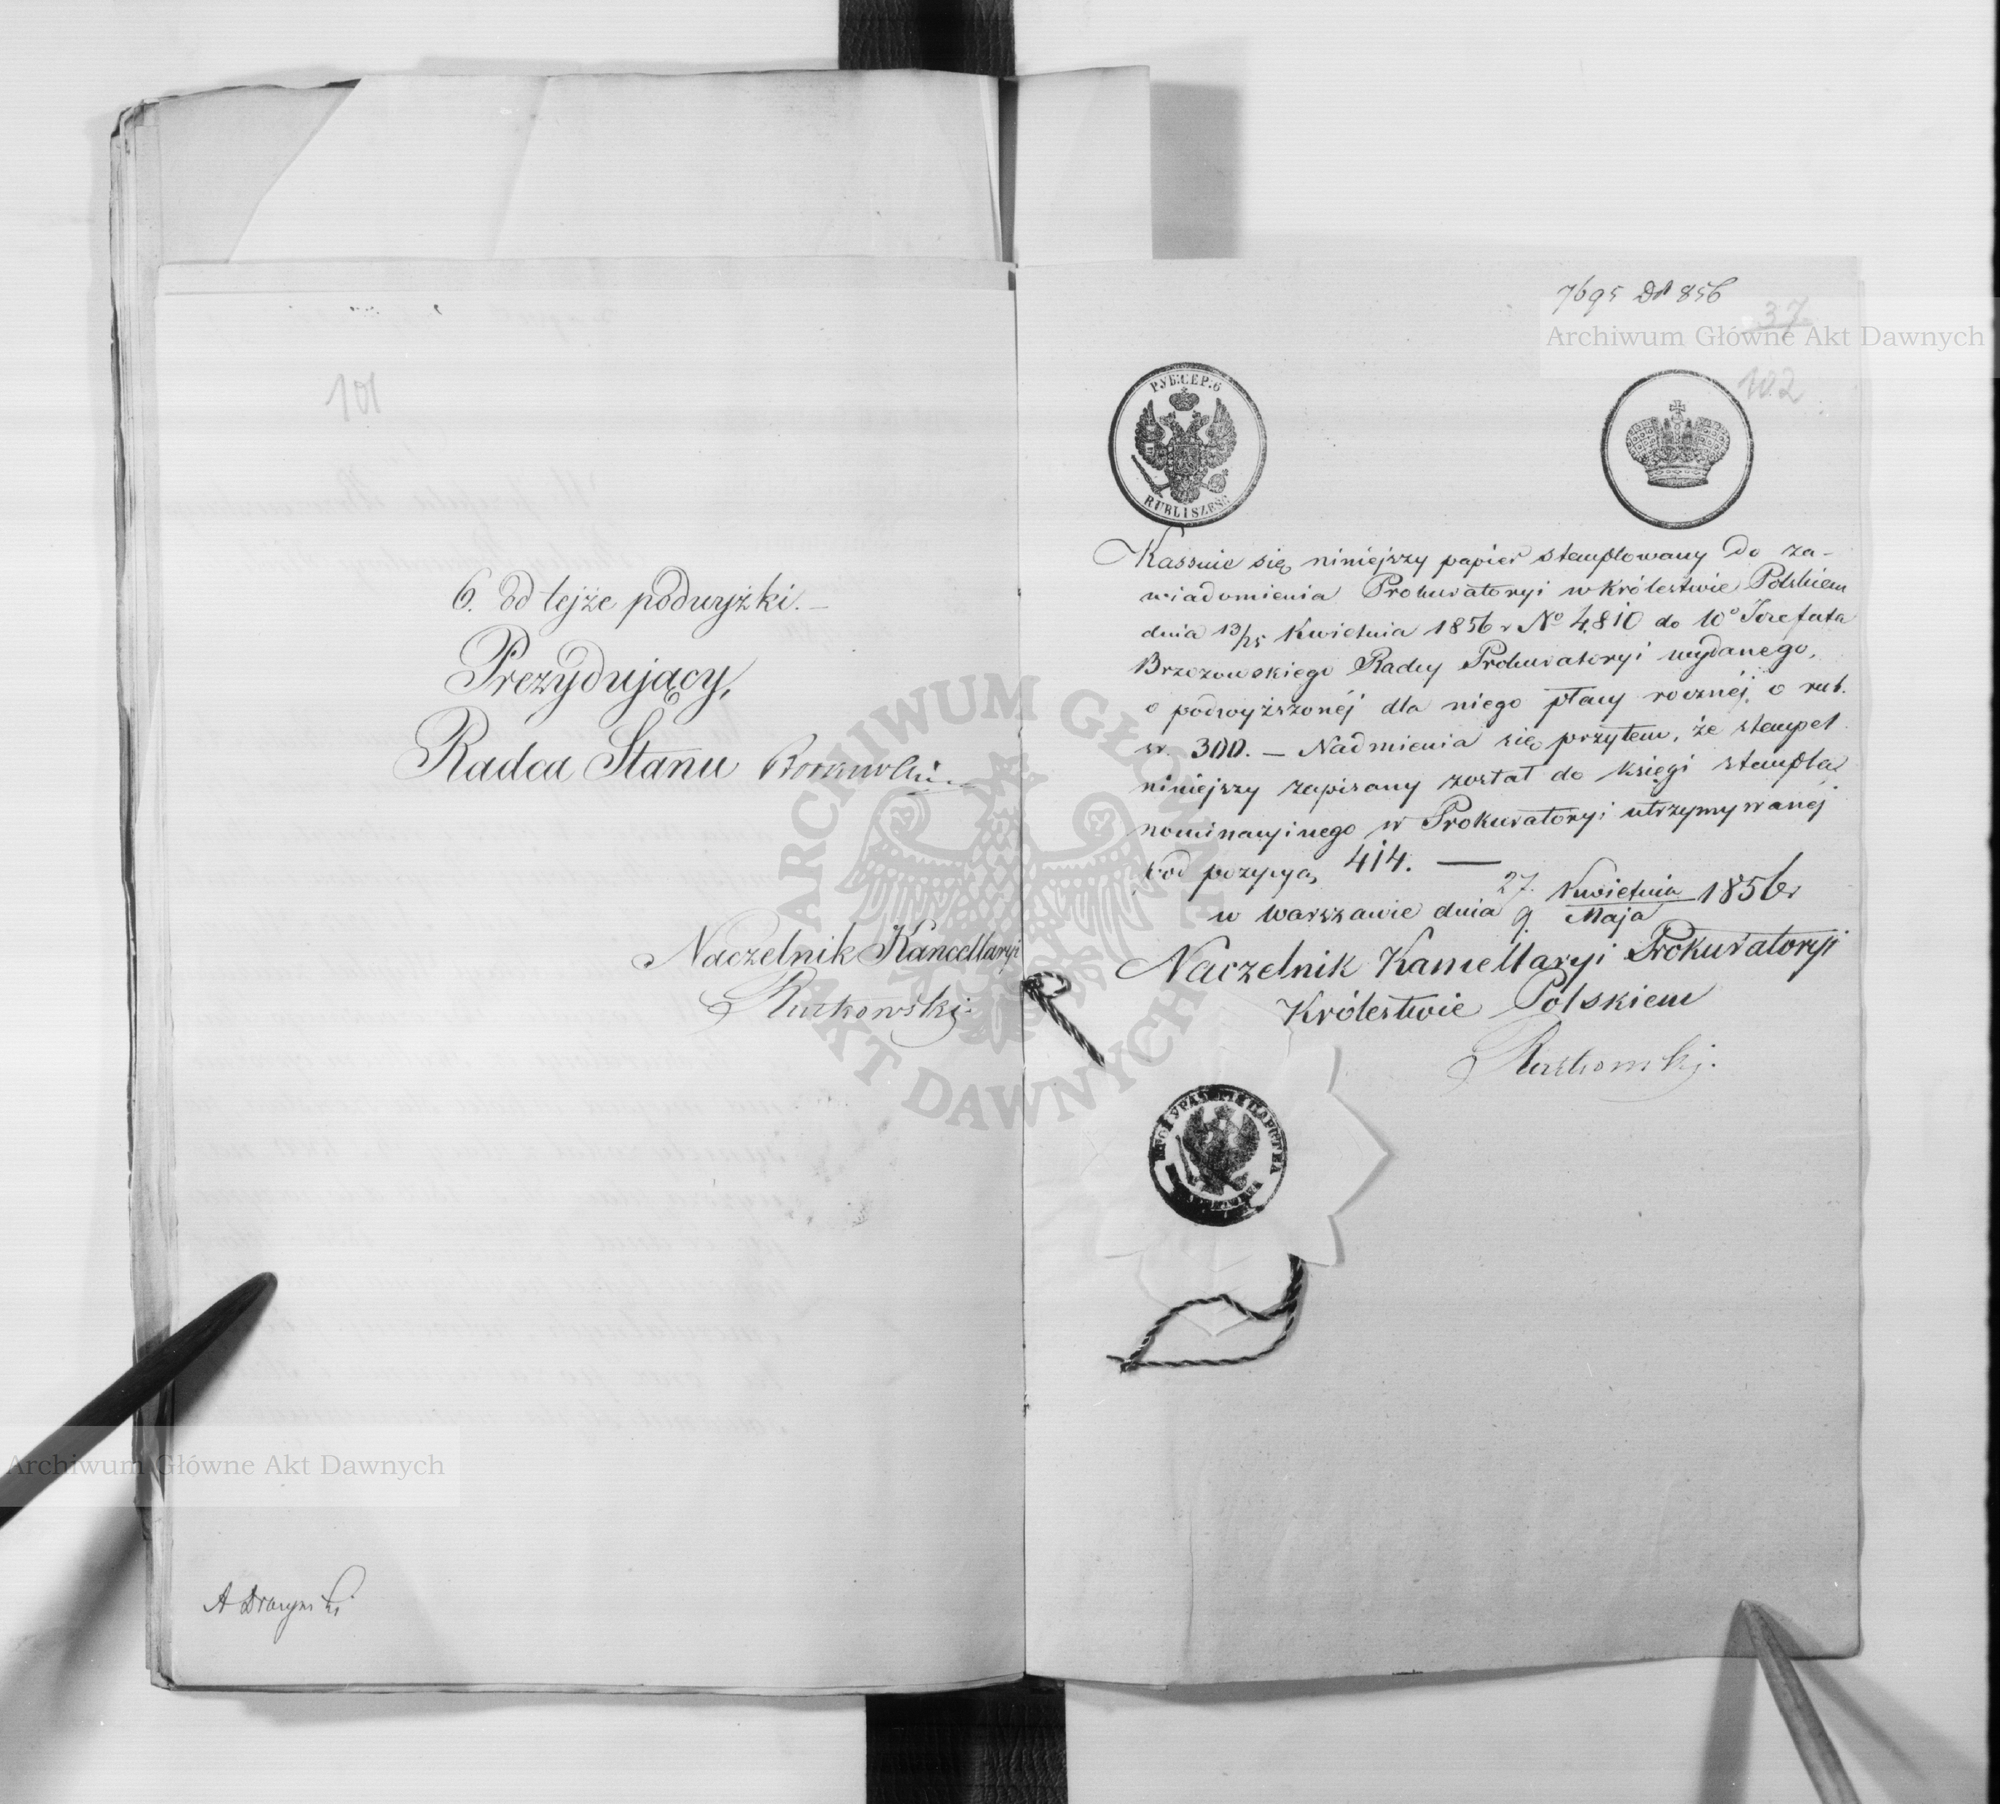 101
6. od tejże podwyżki. —
Prezydujący,
Radca Stanu
Naczelnik Kancellaryi
Rutkowski
7695 856
37
102
РУБ:СЕР:6
RUBLI SZEŚĆ
Kassuie się niniejszy papier stemplowany do za-
wiadomienia Prokuratoryi w Królestwie Polskiem
dnia 13/25 Kwietnia 1856 r No 4,810 do 10º Jozefata
Brzozowskiego Radcy Prokuratoryi wydanego,
o podwyższonéj dla niego płacy rocznéj o rub.
sr. 300. — Nadmienia się przytem, że stempel
niniejszy zapisany został do księgi stempla
nominacyjnego w Prokuratoryi utrzymywanéj
pod pozycyą 414. —
w Warszawie dnia 27. Kwietnia / 9 Maja 1856 r
Naczelnik Kancellaryi Prokuratoryi
Królestwie Polskiem
Rutkowski.
Archiwum Główne Akt Dawnych
ARCHIWUM GŁÓWNE AKT DAWNYCH
Archiwum Główne Akt Dawnych